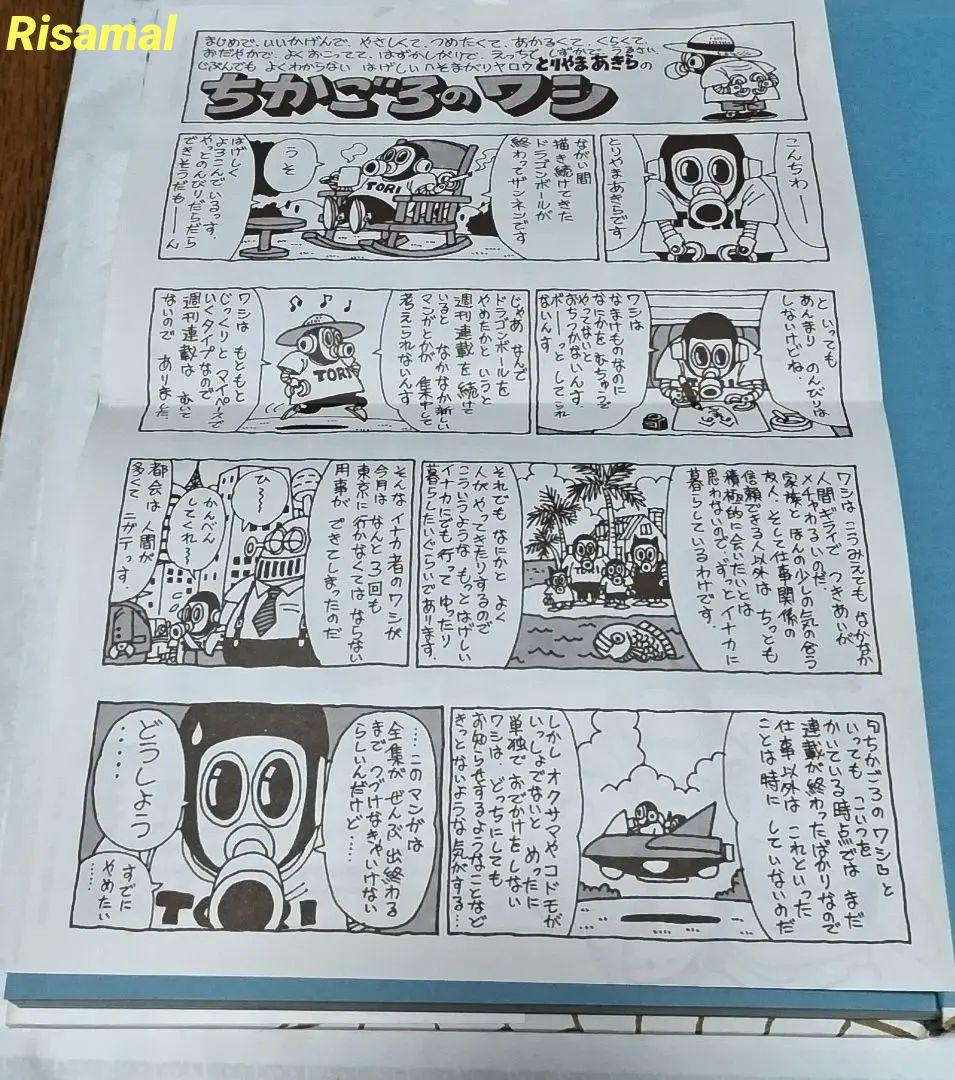 Risamal
まじめで、いいかげんで、やさしくて、つめたくて、あかるくて、くらくて、
おだやかで、よくおこってて、はずかしがりで、えっちで、しずかで、うるさい、
じぶんでも よくわからない はげしいへそまがりヤロウ とりやまあきらの
ちかごろのワシ
こんちわ——
とりやまあきらです
ながい間
描き続けてきた
ドラゴンボールが
終わってザンネンです
うそ
はげしく
よろこんでいるっす.
やっとのんびりだらだら
できそうだも——ん
TORI
と いっても
あんまり のんびりは
しないけどね.
ワシは
なまけものなのに
なにかを むちゅうで
やってないと
おちつかないんす.
ボ——っと してられ
ないんす.
じゃあ なんで
ドラゴンボールを
やめたかと いうと
週刊連載を 続けて
いると なかなか新しい
マンガとかが 集中して
考えられないんす
ワシは もともと
じっくりと マイペースで
いくタイプなので
週刊連載は むいて
ないので ありました
TORI
ワシは こうみえても なかなか
人間ギライで つきあいが
メチャわるいのだ.
家族と ほんの少しの気の合う
友人、そして仕事関係の
信頼できる人以外は ちっとも
積極的に会いたいとは
思わないので、ずっと イナカに
暮らしているわけです.
それでも なにかと よく
人が やってきたりするので
こういうような もっとはげしい
イナカにでも 行って ゆったり
暮らしたいぐらいであります.
そんな イナカ者のワシが
今月は なんと 3回も
東京に 行かなくては ならない
用事が できてしまったのだ
ひ〜〜
かんべん
してくれ〜
都会は 人間が
多くて ニガテっす.
『ちかごろのワシ』と
いっても こいつを
かいている時点では まだ
連載が終わったばかりなので
仕事以外は これといった
ことは 時に していないのだ
しかし オクサマや コドモが
いっしょでないと めったに
単独で おでかけをしない
ワシは、どっちにしても
お知らせするようなことなど
きっとないような 気がする…
……このマンガは
全集が ぜんぶ 出終わる
まで つづけなきゃいけない
らしいんだけど……
……
どうしよう
……
すでに
やめたい